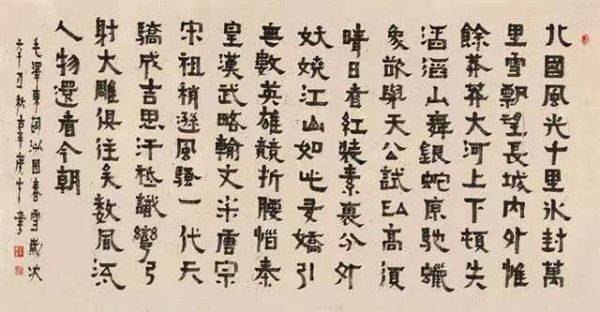 北國風光千里冰封萬
里雪飄望長城内外惟
餘莽莽大河上下頓失
滔滔山舞銀蛇原馳蠟
象欲與天公試比高須
晴日看紅裝素裹分外
妖嬈江山如此多嬌引
無數英雄競折腰惜秦
皇漢武略輸文采唐宗
宋祖稍遜風騷一代天
驕成吉思汗祗識彎弓
射大雕俱往矣數風流
人物還看今朝
毛澤東詞沁園春雪歲次
辛丑秋